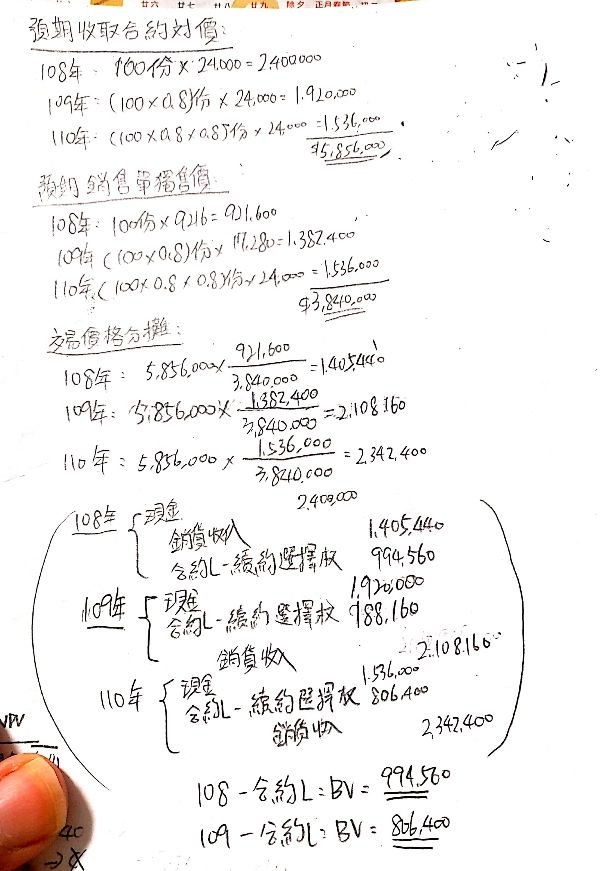 廿六 廿七 廿八 廿九 除夕 正月春節
預期收取合約対價:
108年: 100份×24,000=2400000
109年:(100×0.8)份×24,000=1.920,000
110年:(100×0.8×0.8)份×24,000=1.536,000
$5,856,000
預約銷售單獨售價:
108年:100份×9216=921,600
109年(100×0.8)份×17,280=1.382,400
110年:(100×0.8×0.8)份×24,000=1.536,000
$3,840,000
交易價格分攤:
108年: 5,856,000× 921,600/3,840,000 =1,405,440
109年: 5,856,000× 1,382,400/3,840,000 =2,108,160
110年=5,856,000× 1,536,000/3,840,000 =2,342,400
108年 現金 2,400,000
銷貨收入 1,405,440
合約L-續約選擇权 994,560
109年 現金 1,920,000
合約L-續約選擇权 188,160
銷貨收入 2,108,160
110年 現金 1,536,000
合約L-續約選擇权 806,400
銷貨收入 2,342,400
108-合約L:BV= 994,560
109-合約L:BV= 806,400